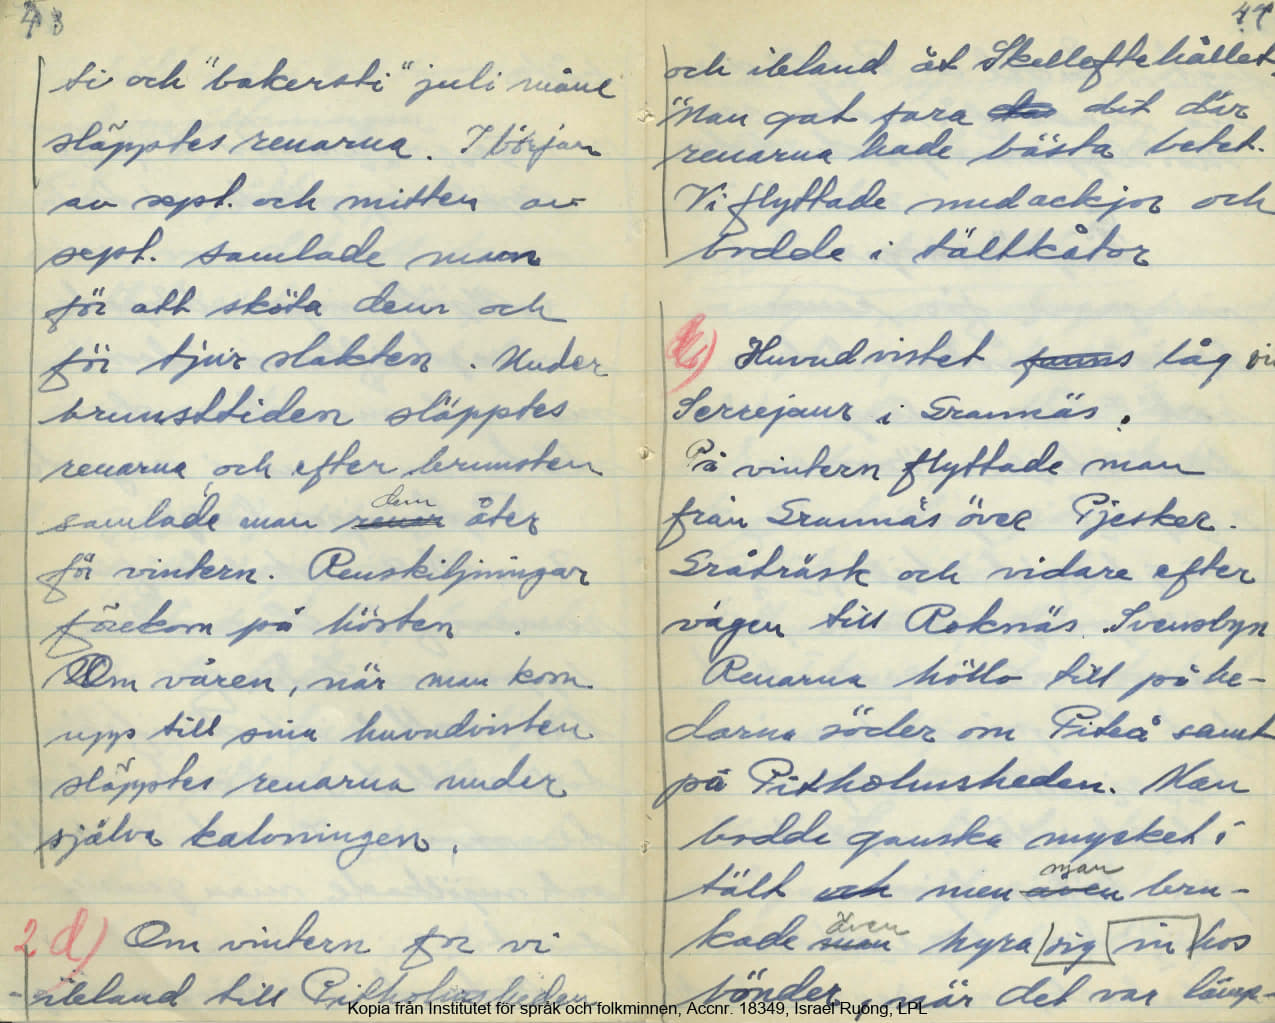 43
ti och "bakersti" juli måne
släpptes renarna. I början
av sept. och mitten av
sept. samlade man
för att sköta dem och
för tjur slakten. Under
brunsttiden släpptes
renarna, och efter brunsten
dem
samlade man renar åter
för vintern. Renskiljningar
förekom på hösten.
Om våren, när man kom
upp till sina huvudvisten
släpptes renarna under
själva kalvningen.
2 d) Om vintern for vi
ibland till Pitholmsheden
44
och ibland åt Skelleftehållet.
"Man gat fara det där
renarna hade bästa betet.
Vi flyttade med ackjor och
bodde i tältkåtor
Huvudvistet fanns låg vi
Serrejaur i Grannäs.
På vintern flyttade man
från Grannäs över Pjesker.
Gråträsk och vidare efter
vägen till Roknäs. Svensbyn
Renarna höllo till på he-
darna söder om Piteå samt
på Pitholmsheden. Man
bodde ganska mycket i
man
tält och men även bru-
även
kade man hyra sig in hos
bönder, när det var lämp-
Kopia från Institutet för språk och folkminnen, Accnr. 18349, Israel Ruong, LPL